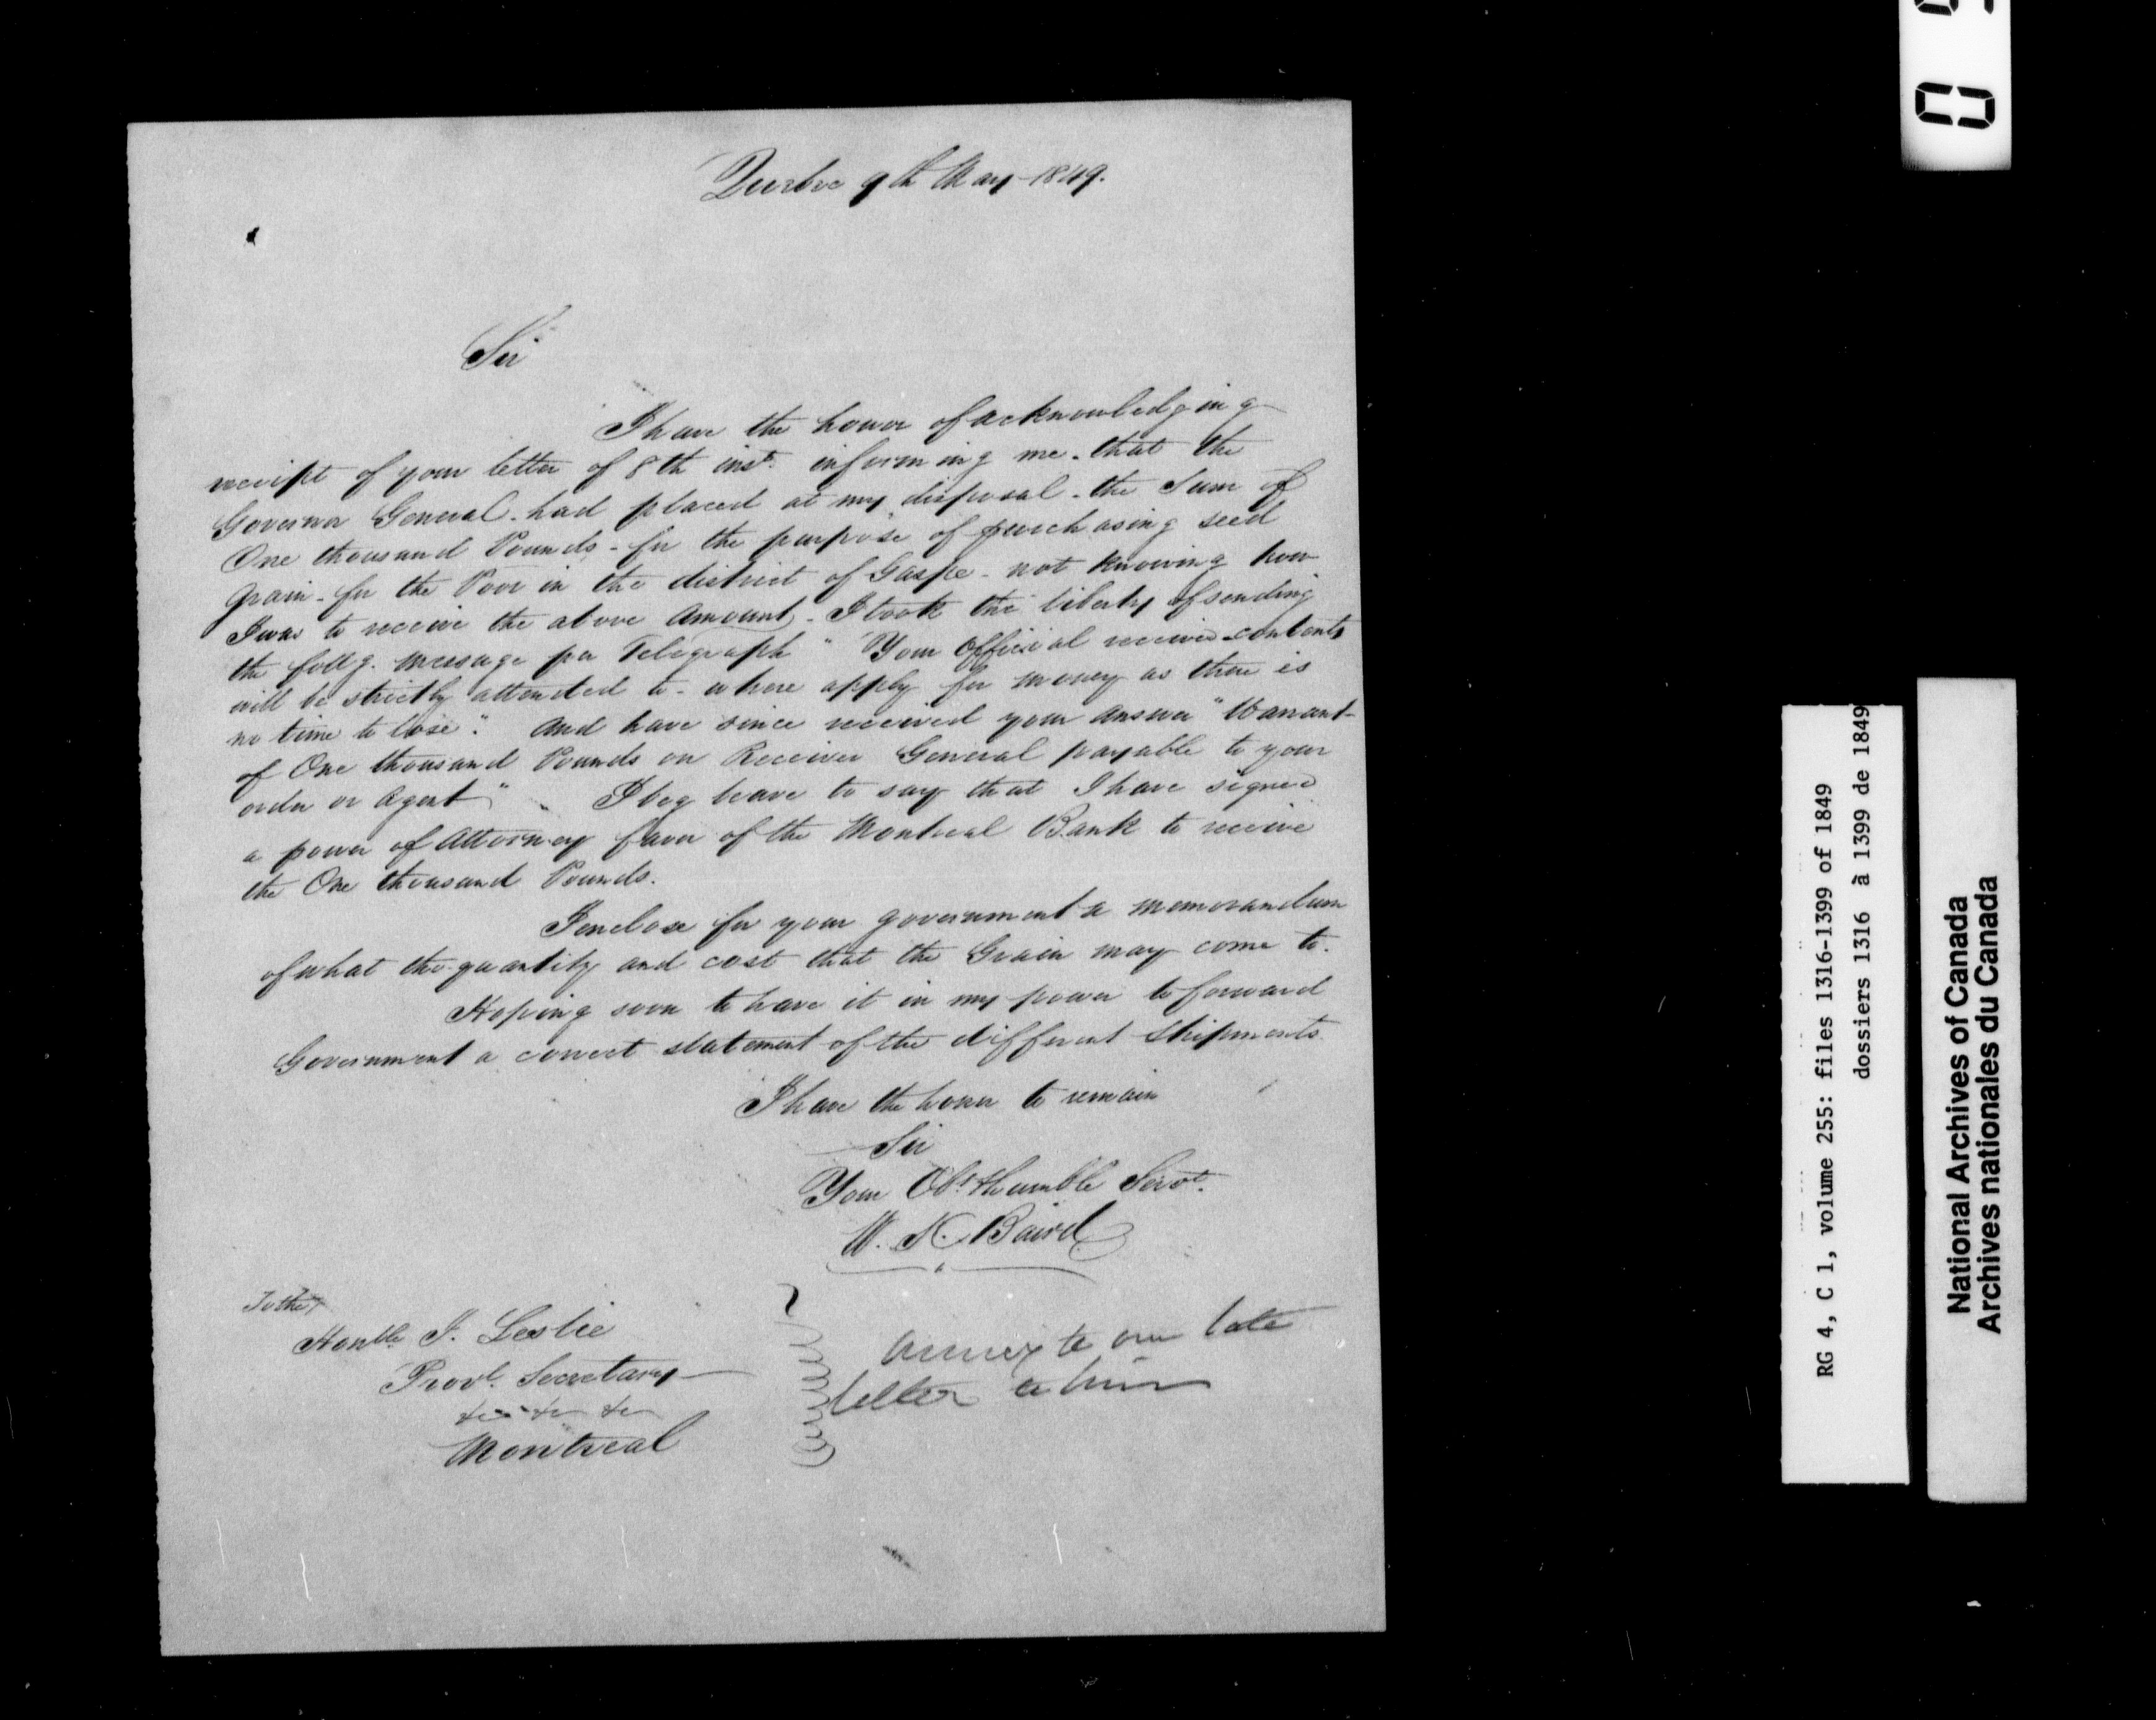 Quebec 9th May 1849.
Sir
I have the honor of acknowledging
receipt of your letter of 8th inst. informing me - that the
Governor General - had placed at my disposal - the Sum of
One thousand Pounds - for the purpose of purchasing seed
grain - for the Poor in the district of Gaspe - not knowing how
I was to receive the above Amount - I took the liberty of sending
the follg. message per Telegraph " Your Official received - contents
will be strictly attended to - where apply for money as there is
no time to lose ". And have since received your Answer " Warrant
of One thousand Pounds on Receiver General payable to your
order or Agent " I beg leave to say that I have signed
a power of Attorney favor of the Montreal Bank to receive
the One thousand Pounds.
I enclose for your government a memorandum
of what the quantity and cost that the Grain may come to.
Hoping soon to have it in my power to forward
Government a correct statement of the different Shipments
I have the honor to remain
Sir
Your Obt. Humble Servt.
W. K. Baird
To the
Honble. J. Leslie
Provl. Secretary
&c &c &c
Montreal
Annex to our late
letter to him
RG 4, C 1, volume 255: files 1316-1399 of 1849
dossiers 1316 à 1399 de 1849
National Archives of Canada
Archives nationales du Canada